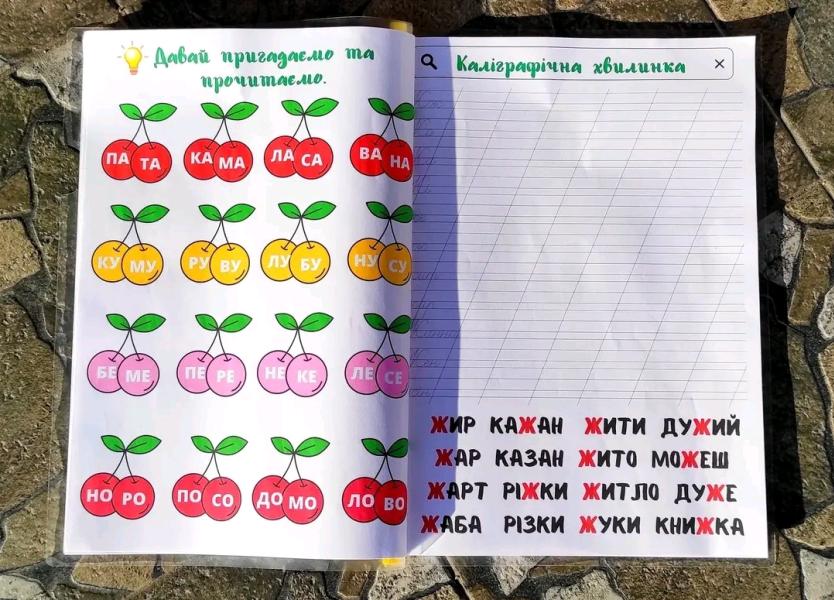 Давай пригадаємо та
прочитаємо.
ПА ТА КА МА ЛА СА ВА НА
КУ МУ РУ ВУ ЛУ БУ НУ СУ
БЕ МЕ ПЕ РЕ НЕ КЕ ЛЕ СЕ
НО РО ПО СО ДО МО ЛО ВО
Каліграфічна хвилинка
ЖИР КАЖАН ЖИТИ ДУЖИЙ
ЖАР КАЗАН ЖИТО МОЖЕШ
ЖАРТ РІЖКИ ЖИТЛО ДУЖЕ
ЖАБА РІЗКИ ЖУКИ КНИЖКА